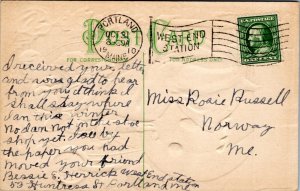 PORTLAND
10
MAINE
WEST END
STATION
Post Card
FOR CORRES
I received your letter
and was glad to hear
from you I think I
shall stay where
I am this winter
No I am Not in the shoe
shop yet I see by
the paper you had
moved your friend
Bessie E. Herrick West End Station
53 Huntress St Portland Me
Miss Rosie Russell
Norway
Me.